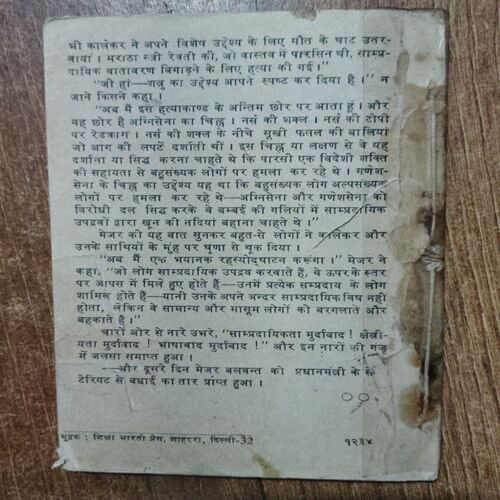 भी कालेकर ने अपने विशेष उद्देश्य के लिए मौत के घाट उतर-
वाया । मराठा स्त्री रेवती की, जो वास्तव में पारसिन थी, साम्प्र-
दायिक वातावरण बिगाड़ने के लिए हत्या की गई ।”
“जी हां—शत्रु का उद्देश्य आपने स्पष्ट कर दिया है ।” न
जाने किसने कहा ।
“अब मैं इस हत्याकाण्ड के अन्तिम छोर पर आता हूं । और
वह छोर है अग्निसेना का चिह्न । नर्स की शक्ल । नर्स की टोपी
पर रेडक्रास । नर्स की शक्ल के नीचे सूखी फसल की बालियां
जो आग की लपटें दर्शाती थीं । इस चिह्न या लक्षण से वे यह
दर्शाना या सिद्ध करना चाहते थे कि पारसी एक विदेशी शक्ति
की सहायता से बहुसंख्यक लोगों पर हमला कर रहे थे । गणेश-
सेना के चिह्न का उद्देश्य यह था कि बहुसंख्यक लोग अल्पसंख्यक
लोगों पर हमला कर रहे थे—अग्निसेना और गणेशसेना को
विरोधी दल सिद्ध करके वे बम्बई की गलियों में साम्प्रदायिक
उपद्रवों द्वारा खून की नदियां बहाना चाहते थे ।”
मेजर की यह बात सुनकर बहुत-से लोगों ने कालेकर और
उनके साथियों के मुंह पर घृणा से थूक दिया ।
“अब मैं एक भयानक रहस्योद्घाटन करूंगा ।” मेजर ने
कहा, “जो लोग साम्प्रदायिक उपद्रव करवाते हैं, वे ऊपर के स्तर
पर आपस में मिले हुए होते हैं—उनमें प्रत्येक सम्प्रदाय के लोग
शामिल होते हैं—यानी उनके अपने अन्दर साम्प्रदायिक विष नहीं
होता, लेकिन वे सामान्य और मासूम लोगों को बरगलाते और
बहकाते हैं ।”
चारों ओर से नारे उभरे, “साम्प्रदायिकता मुर्दाबाद ! क्षेत्री-
यता मुर्दाबाद ! भाषावाद मुर्दाबाद !” और इन नारों की गूंज
में जलसा समाप्त हुआ ।
—और दूसरे दिन मेजर बलवन्त को प्रधानमंत्री के से
टेरियट से बधाई का तार प्राप्त हुआ ।
○○
मुद्रक : शिक्षा भारती प्रेस, शाहदरा, दिल्ली-32 १२३४